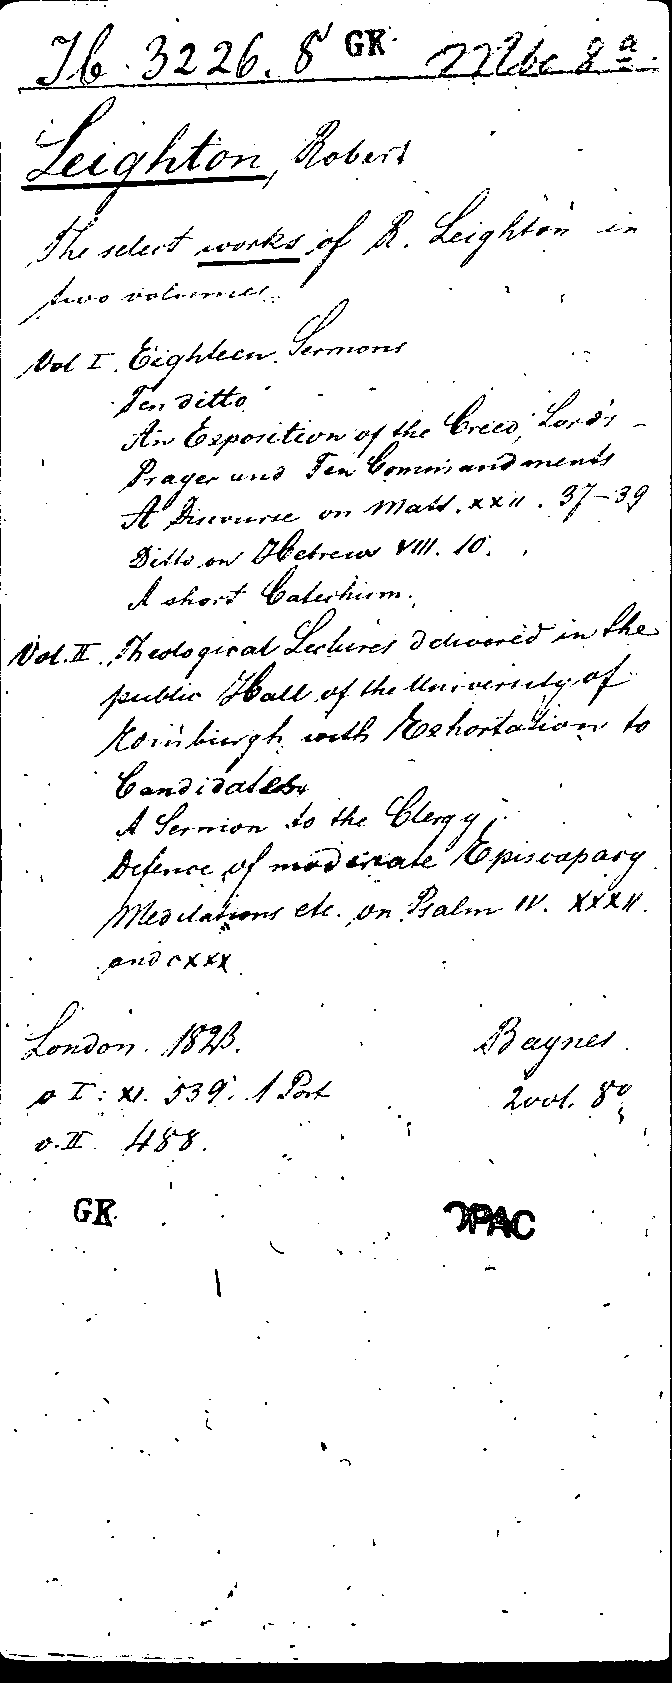 Ib. 3226. 8° GK. Mbc 8a.
Leighton, Robert
The select works of R. Leighton in
two volumes.
Vol I. Eighteen Sermons
Ten ditto
An Exposition of the Creed, Lord's
Prayer and Ten Commandments
A Discourse on Matt. XXII. 37-39
Ditto on Hebrews VIII. 10.
A short Catechism.
Vol. II. Theological Lectures delivered in the
public Hall of the University of
Edinburgh with Exhortation to
Candidates
A Sermon to the Clergy
Defence of moderate Episcopacy
Meditations etc. on Psalm IV. XXXII.
and CXXX
London. 1823. Baynes
v I: XI. 539. 1 Port 2 vol. 8°
v. II 488.
GK OPAC